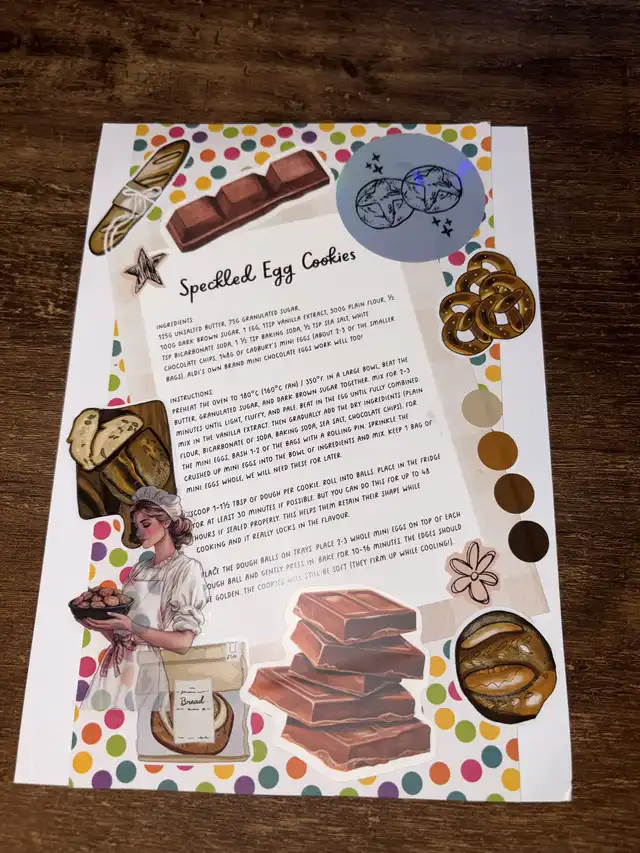 Speckled Egg Cookies
INGREDIENTS:
125G UNSALTED BUTTER, 75G GRANULATED SUGAR,
100G DARK BROWN SUGAR, 1 EGG, 1TSP VANILLA EXTRACT, 300G PLAIN FLOUR, ½
TSP BICARBONATE SODA, 1 ½ TSP BAKING SODA, ½ TSP SEA SALT, WHITE
CHOCOLATE CHIPS, 148G OF CADBURY'S MINI EGGS (ABOUT 2-3 OF THE SMALLER
BAGS). ALDI'S OWN BRAND MINI CHOCOLATE EGGS WORK WELL TOO!
INSTRUCTIONS:
PREHEAT THE OVEN TO 180°C (160°C FAN) / 350°F. IN A LARGE BOWL, BEAT THE
BUTTER, GRANULATED SUGAR, AND DARK BROWN SUGAR TOGETHER. MIX FOR 2-3
MINUTES UNTIL LIGHT, FLUFFY, AND PALE. BEAT IN THE EGG UNTIL FULLY COMBINED.
MIX IN THE VANILLA EXTRACT. THEN GRADUALLY ADD THE DRY INGREDIENTS (PLAIN
FLOUR, BICARBONATE OF SODA, BAKING SODA, SEA SALT, CHOCOLATE CHIPS). FOR
THE MINI EGGS, BASH 1-2 OF THE BAGS WITH A ROLLING PIN. SPRINKLE THE
CRUSHED UP MINI EGGS INTO THE BOWL OF INGREDIENTS AND MIX. KEEP 1 BAG OF
MINI EGGS WHOLE, WE WILL NEED THESE FOR LATER.
SCOOP 1-1½ TBSP OF DOUGH PER COOKIE. ROLL INTO BALLS. PLACE IN THE FRIDGE
FOR AT LEAST 30 MINUTES IF POSSIBLE. BUT YOU CAN DO THIS FOR UP TO 48
HOURS IF SEALED PROPERLY. THIS HELPS THEM RETAIN THEIR SHAPE WHILE
COOKING AND IT REALLY LOCKS IN THE FLAVOUR.
PLACE THE DOUGH BALLS ON TRAYS. PLACE 2-3 WHOLE MINI EGGS ON TOP OF EACH
DOUGH BALL AND GENTLY PRESS IN. BAKE FOR 10-16 MINUTES. THE EDGES SHOULD
BE GOLDEN. THE COOKIES WILL STILL BE SOFT (THEY FIRM UP WHILE COOLING).
Bread